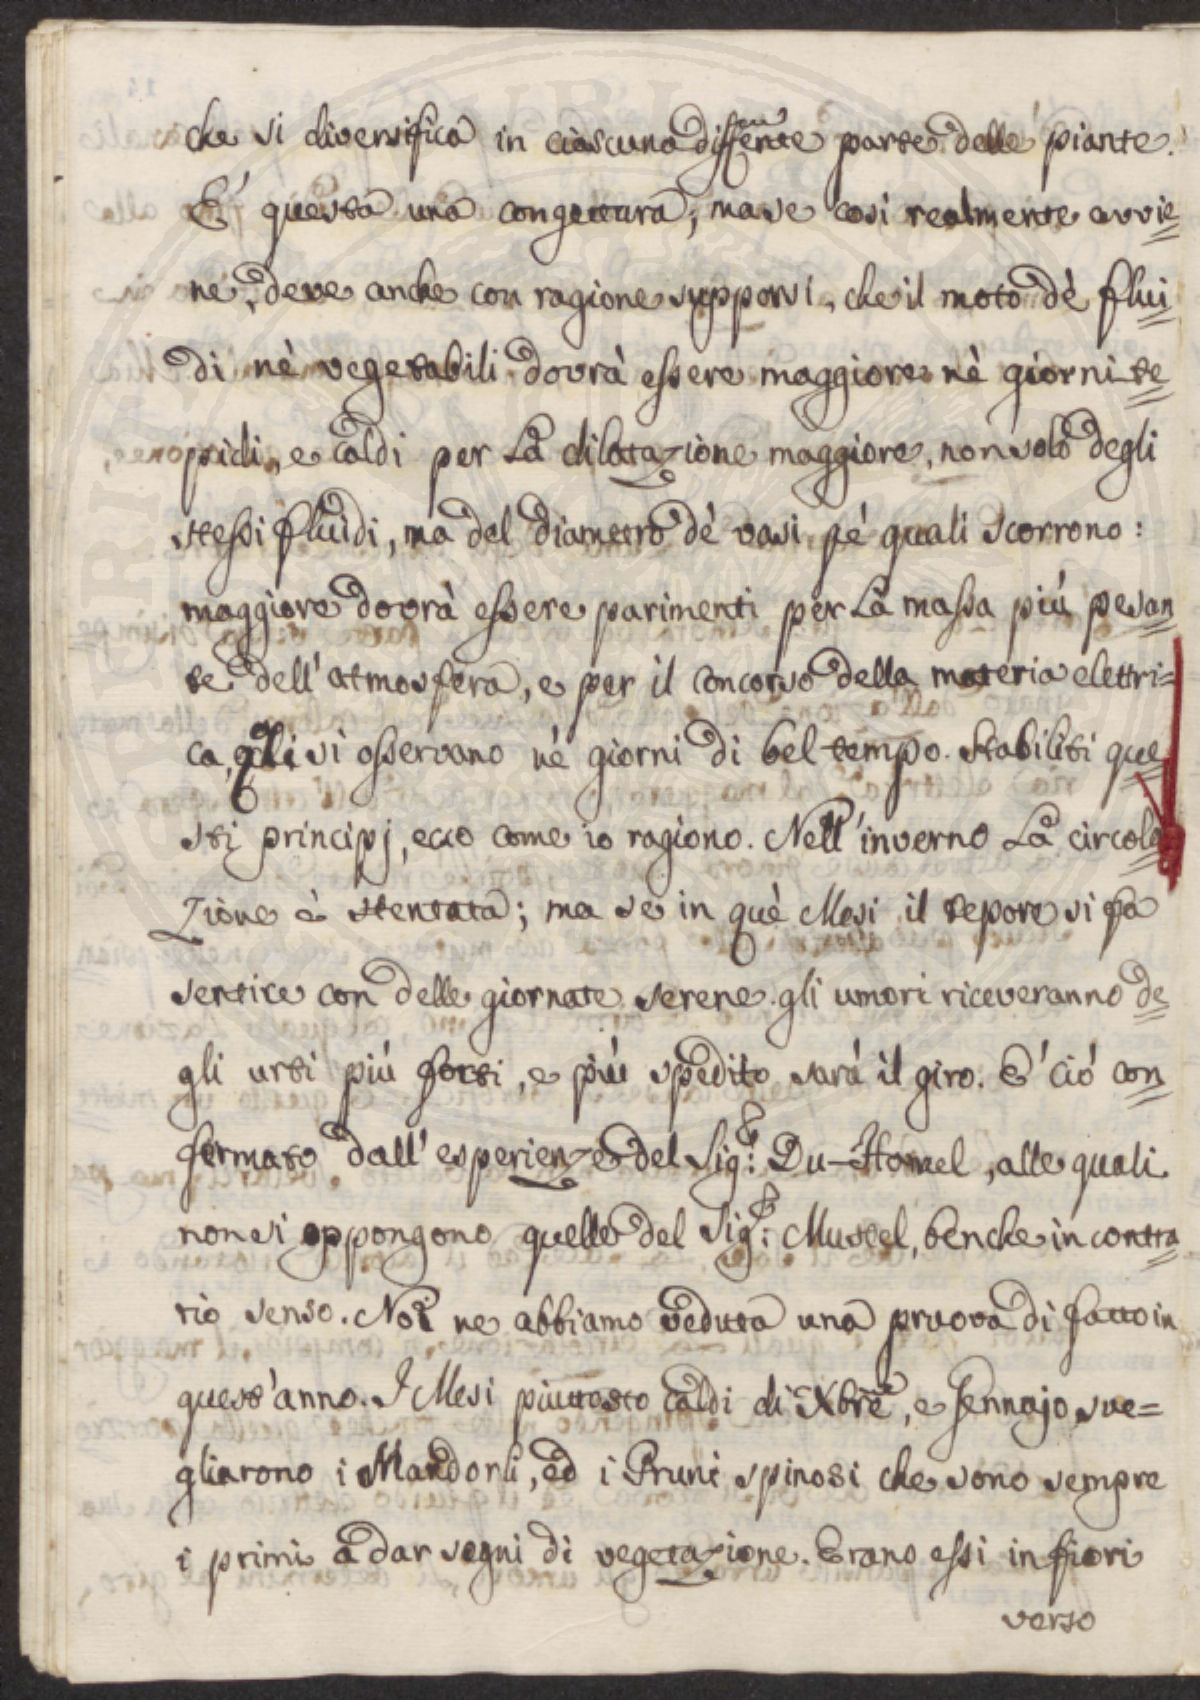 che si diversifica in ciascuna differente parte delle piante.
E' questa una congettura; ma se così realmente avvie=
ne, deve anche con ragione supporsi, che il moto dè flui=
di nè vegetabili dovrà essere maggiore nè giorni te=
pidi, e caldi per La dilatazione maggiore, non solo degli
stessi fluidi, ma del diametro dè vasi pé quali scorrono:
maggiore dovrà essere parimenti per La massa più pesan=
te dell'atmosfera, e per il concorso della materia elettri=
ca, quali si osservano nè giorni di bel tempo. Stabiliti que=
sti principj, ecco come io ragiono. Nell'inverno La circola=
zione è stentata; ma se in què Mesi il tepore si fa
sentire con delle giornate serene. gli umori riceveranno de=
gli urti più forti, e più spedito sarà il giro. E' ciò con=
fermato dall'esperienze del Sig.r Du-Hamel, alle quali
non si oppongono quelle del Sig.r Mustel, benche in contra=
rio senso. Noi ne abbiamo veduta una pruova di fatto in
quest'anno. I Mesi piuttosto caldi di Xbre, e Gennajo sve=
gliarono i Mandorli, ed i Pruni spinosi che sono sempre
i primi a dar segni di vegetazione. Erano essi in fiori
verso